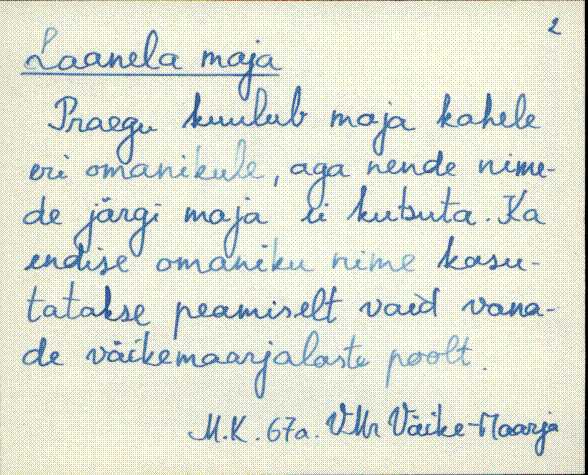 2
Laanela maja
Praegu kuulub maja kahele
eri omanikule, aga nende nime-
de järgi maja ei kutsuta. Ka
endise omaniku nime kasu-
tatakse peamiselt vaid vana-
de väikemaarjalaste poolt.
M.K. 67a. VMr Väike-Maarja